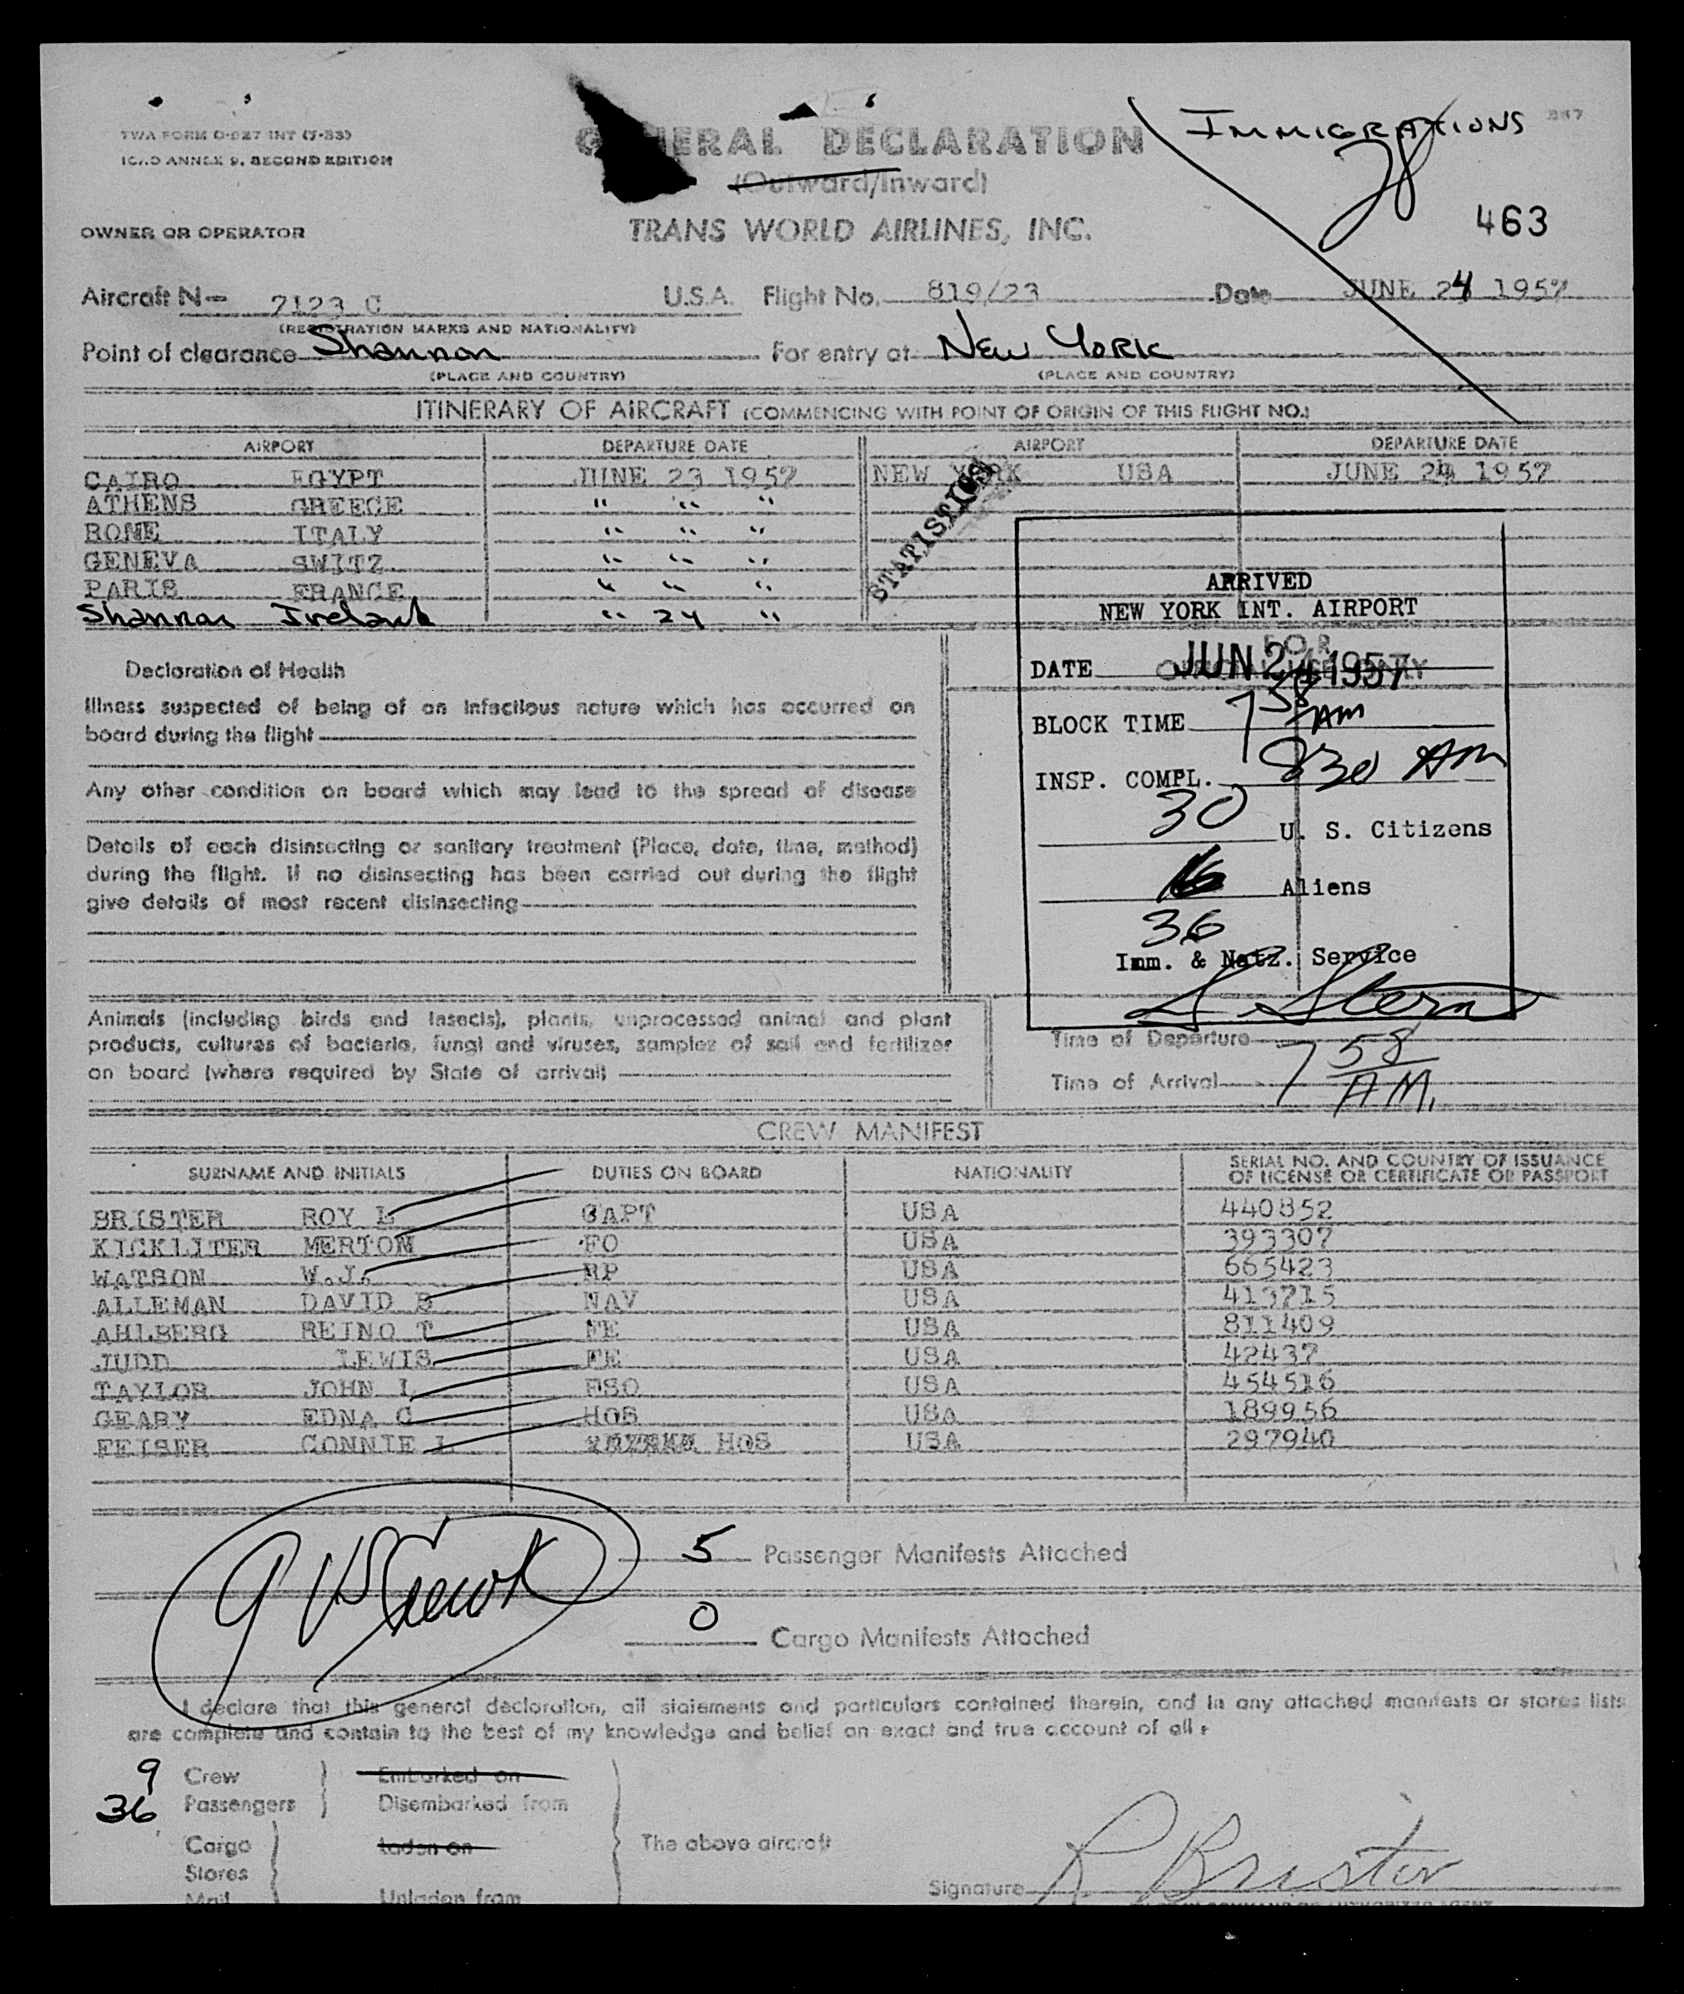 TWA FORM O-827 INT (7-53)
ICAO ANNEX 9, SECOND EDITION
GENERAL DECLARATION
(Outward/Inward)
TRANS WORLD AIRLINES, INC.
IMMIGRATIONS
463
OWNER OR OPERATOR
Aircraft N- 7123 C U.S.A. Flight No. 819/23 Date JUNE 24 1957
(REGISTRATION MARKS AND NATIONALITY)
Point of clearance Shannon For entry at New York
(PLACE AND COUNTRY) (PLACE AND COUNTRY)
ITINERARY OF AIRCRAFT (COMMENCING WITH POINT OF ORIGIN OF THIS FLIGHT NO.)
AIRPORT DEPARTURE DATE AIRPORT DEPARTURE DATE
CAIRO EGYPT JUNE 23 1957 NEW YORK USA JUNE 24 1957
ATHENS GREECE " " "
ROME ITALY " " "
GENEVA SWITZ " " "
PARIS FRANCE " " "
Shannon Ireland " 24 "
STATISTICS
ARRIVED
NEW YORK INT. AIRPORT
FOR
OFFICIAL USE ONLY
DATE JUN 24 1957
BLOCK TIME 7 58 AM
INSP. COMPL. 830 AM
30 U. S. Citizens
Aliens
36
Imm. & Natz. Service
S Stern
Declaration of Health
Illness suspected of being of an infectious nature which has occurred on
board during the flight
Any other condition on board which may lead to the spread of disease
Details of each disinsecting or sanitary treatment (Place, date, time, method)
during the flight. If no disinsecting has been carried out during the flight
give details of most recent disinsecting
Animals (including birds and insects), plants, unprocessed animal and plant
products, cultures of bacteria, fungi and viruses, samples of soil and fertilizer
on board (where required by State of arrival)
Time of Departure
Time of Arrival 7 58 A.M.
CREW MANIFEST
SURNAME AND INITIALS DUTIES ON BOARD NATIONALITY SERIAL NO. AND COUNTRY OF ISSUANCE
OF LICENSE OR CERTIFICATE OR PASSPORT
BRISTER ROY L CAPT USA 440852
KICKLITER MERTON FO USA 393307
WATSON W.J. RP USA 665423
ALLEMAN DAVID B NAV USA 413715
AHLBERG REINO T FE USA 811409
JUDD LEWIS FE USA 42437
TAYLOR JOHN L FSO USA 454516
GEARY EDNA C HOS USA 189956
FEISER CONNIE L HOS USA 297940
5 Passenger Manifests Attached
0 Cargo Manifests Attached
I declare that this general declaration, all statements and particulars contained therein, and in any attached manifests or stores lists
are complete and contain to the best of my knowledge and belief an exact and true account of all
9 Crew Embarked on
36 Passengers Disembarked from
Cargo Laden on The above aircraft
Stores
Mail Unladen from
Signature R Brister